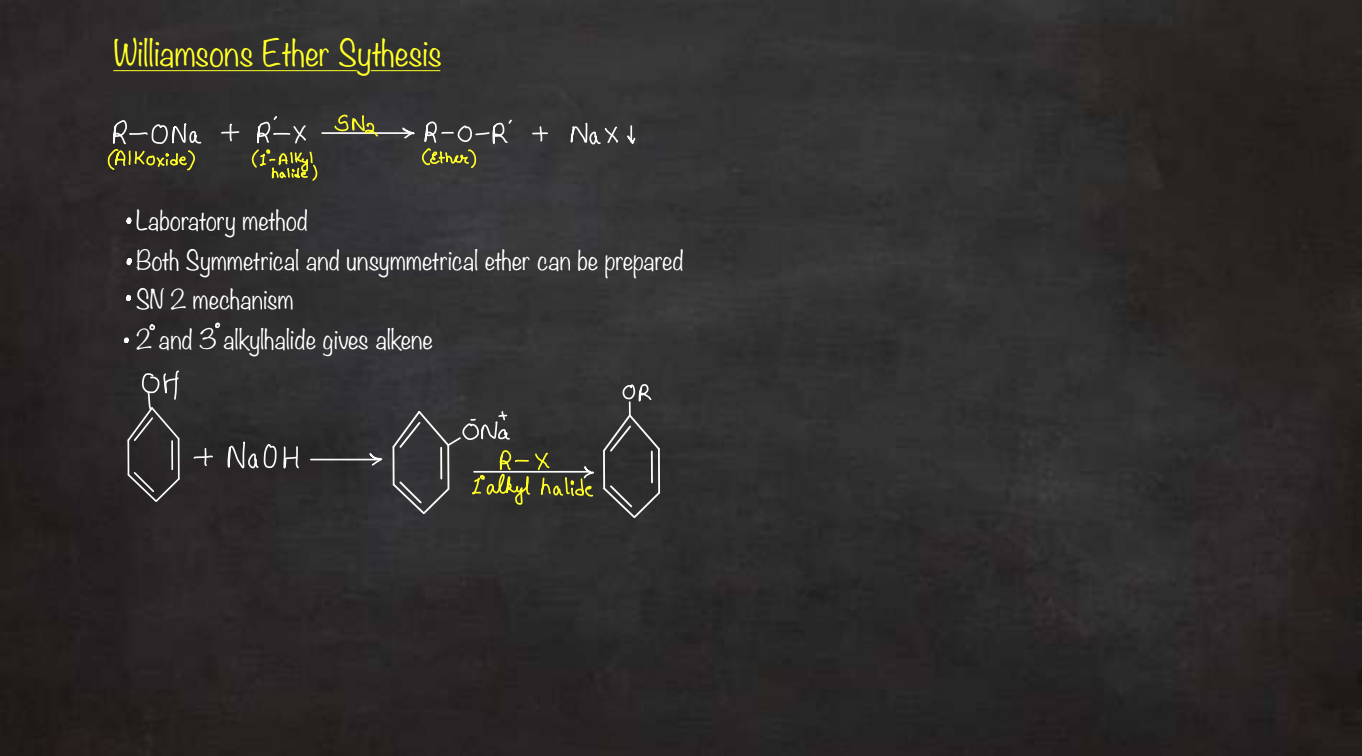 Williamsons Ether Sythesis
R-ONa + R´-X SN2 → R-O-R´ + NaX↓
(Alkoxide) (1°-Alkyl halide) (Ether)
•Laboratory method
•Both Symmetrical and unsymmetrical ether can be prepared
•SN 2 mechanism
•2° and 3° alkylhalide gives alkene
OH
OR
+ NaOH →
ŌNa⁺
R-X
1°alkyl halide